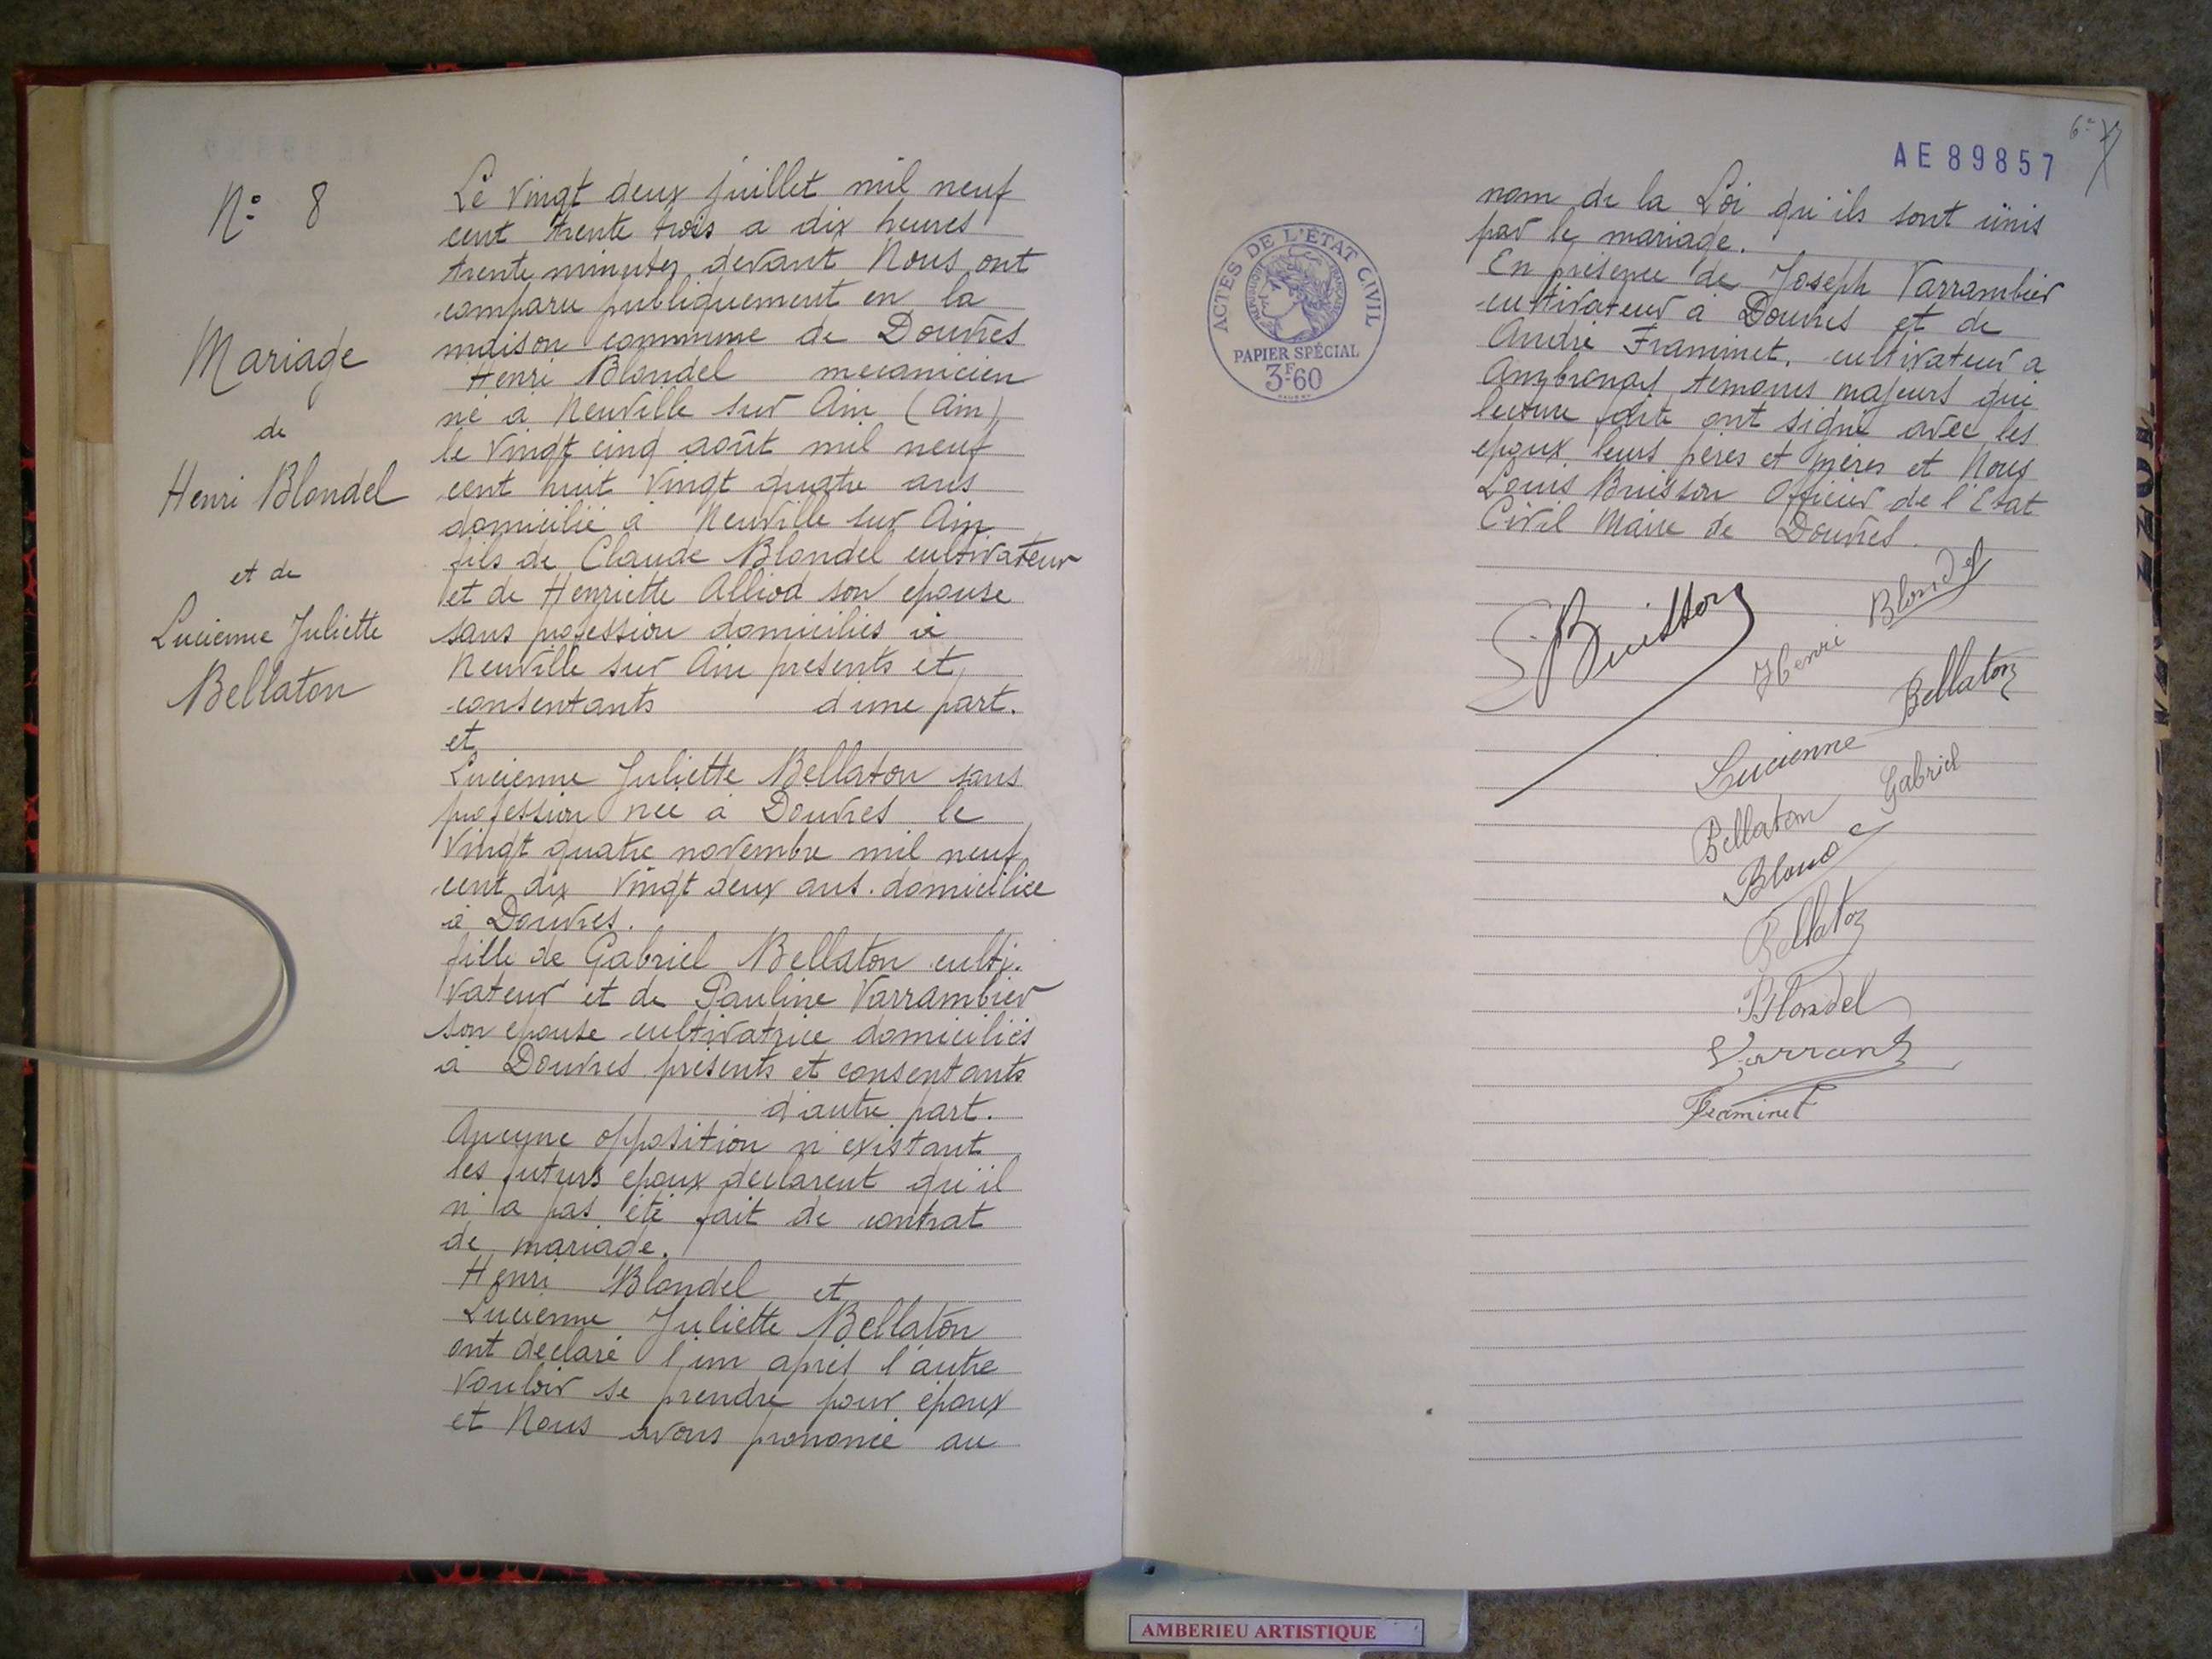 N° 8
Mariage
de
Henri Blondel
et de
Lucienne Juliette
Bellaton
Le vingt deux juillet mil neuf
cent trente trois a dix heures
trente minutes devant Nous ont
comparu publiquement en la
maison commune de Douvres
Henri Blondel mecanicien
né à Neuville sur Ain (Ain)
le vingt cinq août mil neuf
cent huit vingt quatre ans
domicilié à Neuville sur Ain
fils de Claude Blondel cultivateur
et de Henriette Alliod son epouse
sans profession domiciliés à
Neuville sur Ain presents et
consentants d'une part.
et
Lucienne Juliette Bellaton sans
profession née à Douvres le
vingt quatre novembre mil neuf
cent dix vingt deux ans. domiciliée
à Douvres.
fille de Gabriel Bellaton culti-
vateur et de Pauline Varrambier
son epouse cultivatrice domiciliés
à Douvres présents et consentants
d'autre part.
Aucune opposition n'existant
les futurs epoux declarent qu'il
n'a pas été fait de contrat
de mariage.
Henri Blondel et
Lucienne Juliette Bellaton
ont declaré l'un après l'autre
vouloir se prendre pour époux
et Nous avons prononcé au
AE 89857
ACTES DE L'ÉTAT CIVIL
RÉPUBLIQUE FRANÇAISE
PAPIER SPÉCIAL
3F60
nom de la Loi qu'ils sont unis
par le mariage.
En présence de Joseph Varrambier
cultivateur à Douvres et de
André Framinet, cultivateur a
Ambronay temoins majeurs qui
lecture faite ont signé avec les
epoux, leurs pères et mères et Nous
Louis Buisson Officier de l'Etat
Civil Maire de Douvres.
Buisson
Henri Blondel
Lucienne Bellaton
Bellaton Gabriel
Bellaton
Blondel
Framinet
AMBERIEU ARTISTIQUE